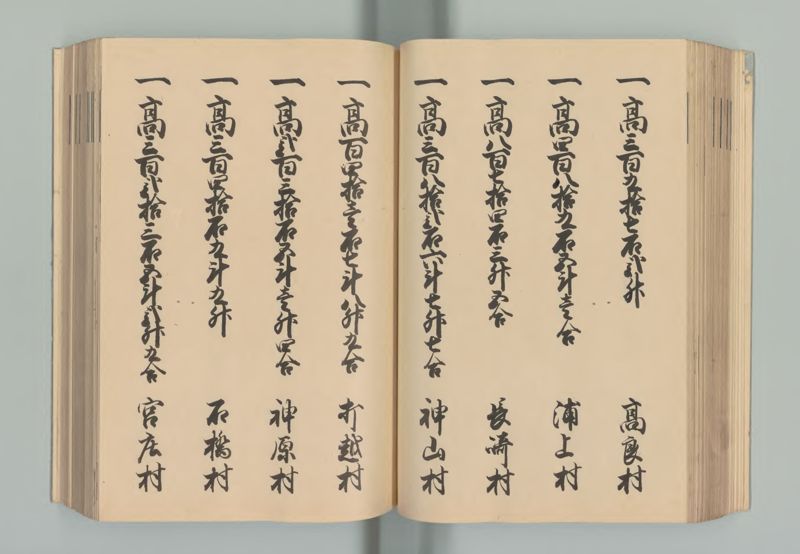 一高三百九拾七石弐升 高良村
一高四百八拾九石五斗壱合 浦上村
一高八百七拾四石三升五合 長崎村
一高三百八拾弐石六斗七升七合 神山村
一高百四拾壱石七斗八升九合 打越村
一高弐百三拾石五斗壱升四合 神原村
一高三百四拾石九斗九升 石橋村
一高三百弐拾三石五斗弐升九合 宮店村